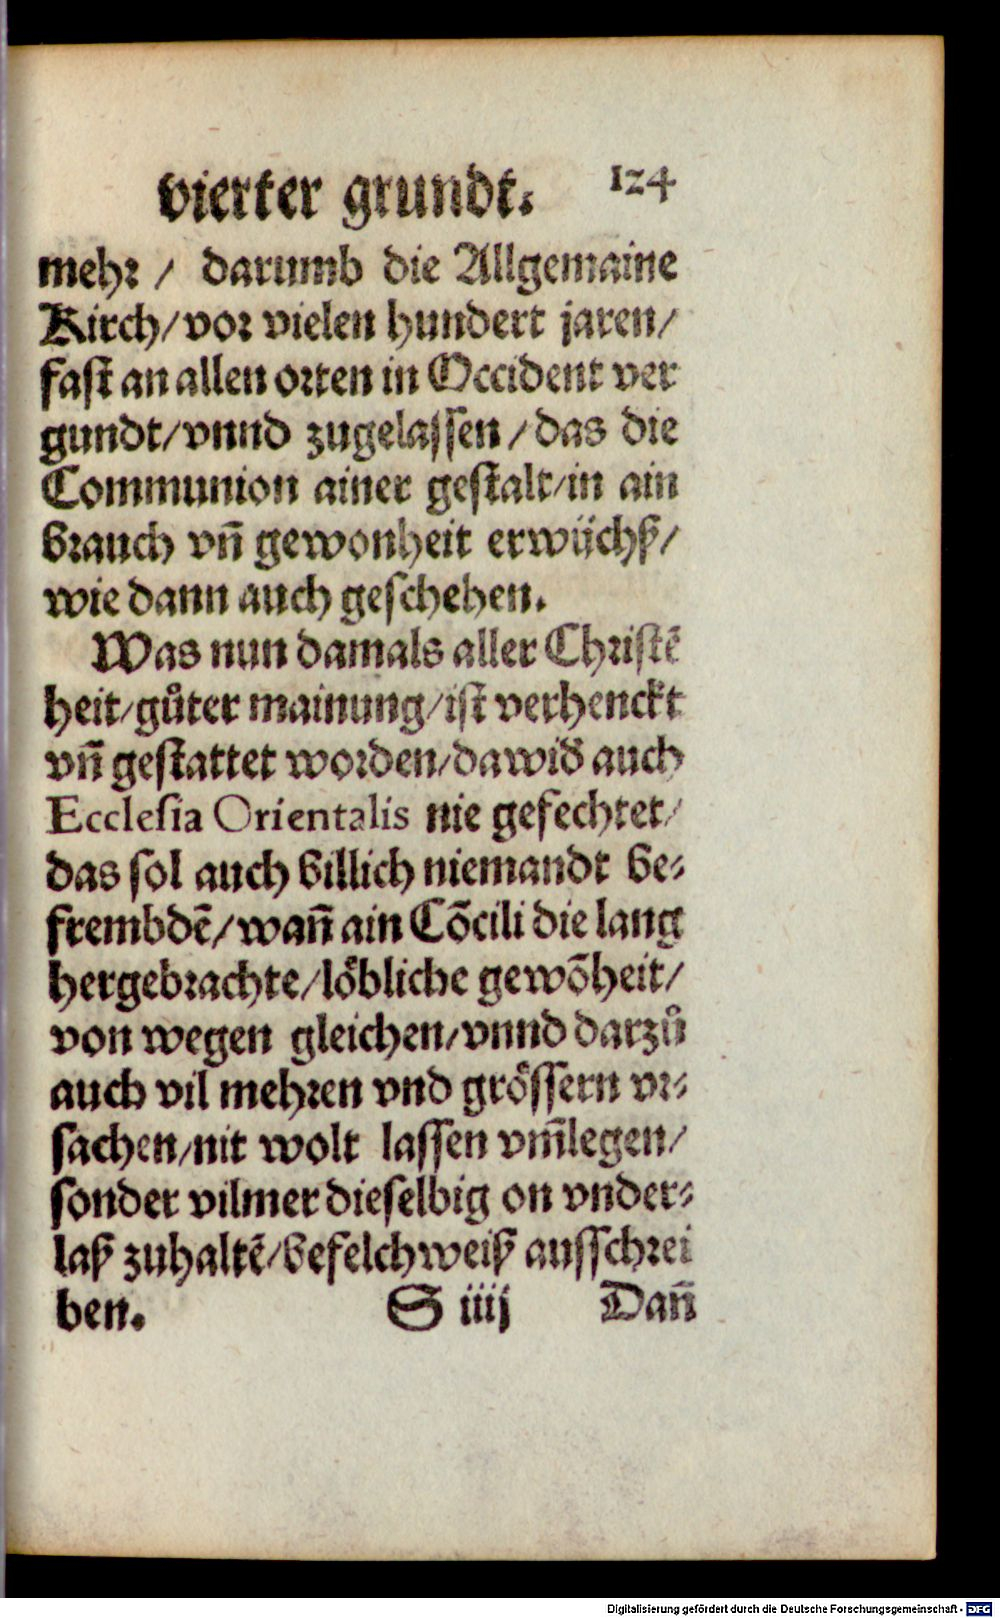 vierter grundt. 124
mehr / darumb die Allgemaine
Kirch/vor vielen hundert jaren/
fast an allen orten in Occident ver
gundt/vnnd zugelassen/das die
Communion ainer gestalt/in ain
brauch vn̄ gewonheit erwüchß/
wie dann auch geschehen.
Was nun damals aller Christē
heit/gůter mainung/ist verhenckt
vn̄ gestattet worden/dawid̄ auch
Ecclesia Orientalis nie gefechtet/
das sol auch billich niemandt be⸗
frembdē/wan̄ ain Cōcili die lang
hergebrachte/löbliche gewōheit/
von wegen gleichen/vnnd darzů
auch vil mehren vnd grössern vr⸗
sachen/nit wolt lassen vm̄legen/
sonder vilmer dieselbig on vnder⸗
laß zuhaltē/befelchweiß ausschrei
ben. S iiij Dan̄
Digitalisierung gefördert durch die Deutsche Forschungsgemeinschaft - DFG